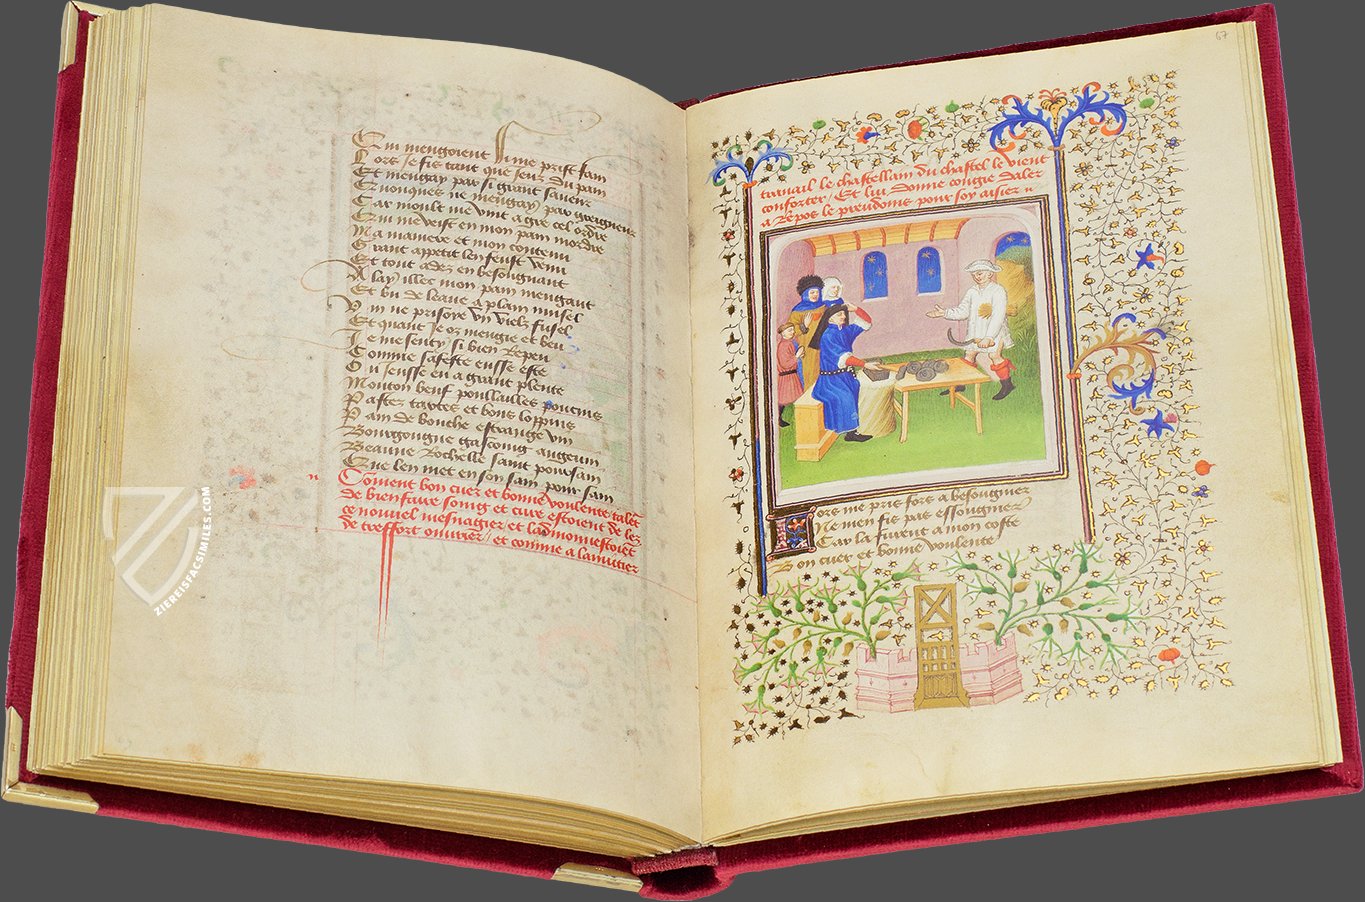 Qui mengoient il me prist fain
Lors je fis tant que jeuz du pain
Et mengay par si grant saveur
Qu'onques ne mengay par greigneur
Car moult me vint a gre cel ordre
Qui me veist en mon pain mordre
Ma maniere et mon contenu
Grant appetit len feust venu
Et tout adez en besongnant
Alay illec mon pain mengant
Et bu de leaue a plain musel
Vin ne prisoye un viels fusel
Et quant je oz mengie et beu
Je me senty si bien repeu
Comme safeste eusse este
Ou jeusse eu a grant plente
Mouton beuf poullailles poucins
Pastez tartes et bons loppins
Pain de bouche estrange vin
Bourgongne gascoing angevin
Beaune Rochelle saint poursain
Que len met en son sain pour sain
Coment bon cuer et bonne voulente talet
de bien faire soing et cure estoient de lez
ce nouvel mesnagier et ladmonnestoiet
de tresfort ouvrer / et comme a lanuitier
67
travail le chastellain du chastel le vient
conforter / Et lui donne congie daler
a Repos le preudoms pour soy aisier
Lors me prie fors a besongnier
Ne men fis pas essongnier
Car la furent a mon coste
Bon cuer et bonne voulente
ZIEREISFACSIMILES.COM